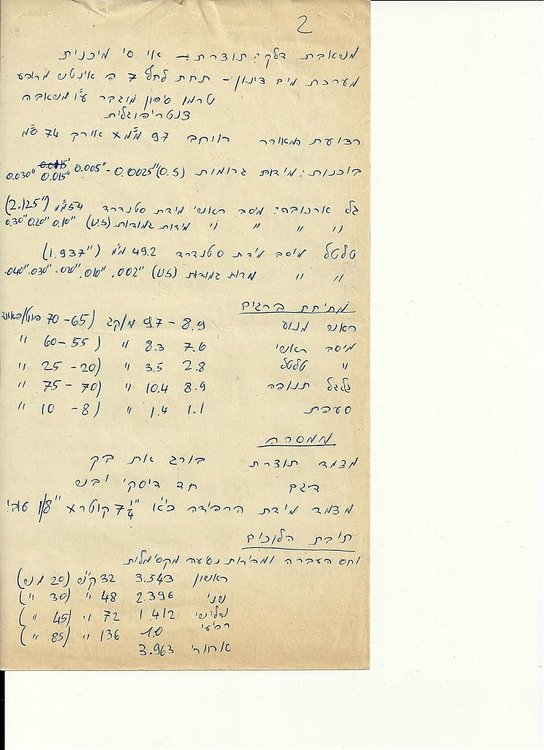 2
משאבת דלק: תוצרת – אי סי מיכנית
מערכת מים צינון – תחת לחץ 7 פ אינטש מרובע
טרמו סיפון מוגבר ע"י משאבה
צנטריפוגלית
רצועת המאורר רוחב 97 מ"מ אורך 74 ס"מ
בוכנות: מידות גדומות (S.O) 0.0025" - 0.005" 0.015" 0.030"
גל ארכובה: מיסב ראשי מידת סטנדרד 54 מ"מ (2.125")
" " " " מידות גמורות (U.S) 0.10" 0.20" 0.30"
טלטל מיסב מידת סטנדרד 49.2 מ"מ (1.937")
" " מדות גמורות (U.S) .002", .010", .020", .030" .040"
מתיחת ברגים
ראש מנוע 8.9 – 9.7 מ/קג (65 – 70
מיסב ראשי 7.6 8.3 " (55 – 60 "
" טלטל 2.8 3.5 " (20 – 25 "
גלגל תנופה 8.9 10.4 " (70 – 75 "
סעפת 1.1 1.4 " (8 – 10 "
ממסרה
מצמד תוצרת בורג את בק
דגם חד דיסקי יבש
מצמד מידת הרפידה כ"א 7¼" קוטר x 1/8"
תיבת הלוכים
יחס העברה ומהירות נסיעה מקסימלית
ראשון 3.543 32 קמ"ש (20
שני 2.396 48 " (30 ")
שלישי 1.412 72 " (45 ")
רביעי 1.0 136 " (85 ")
אחורי 3.963